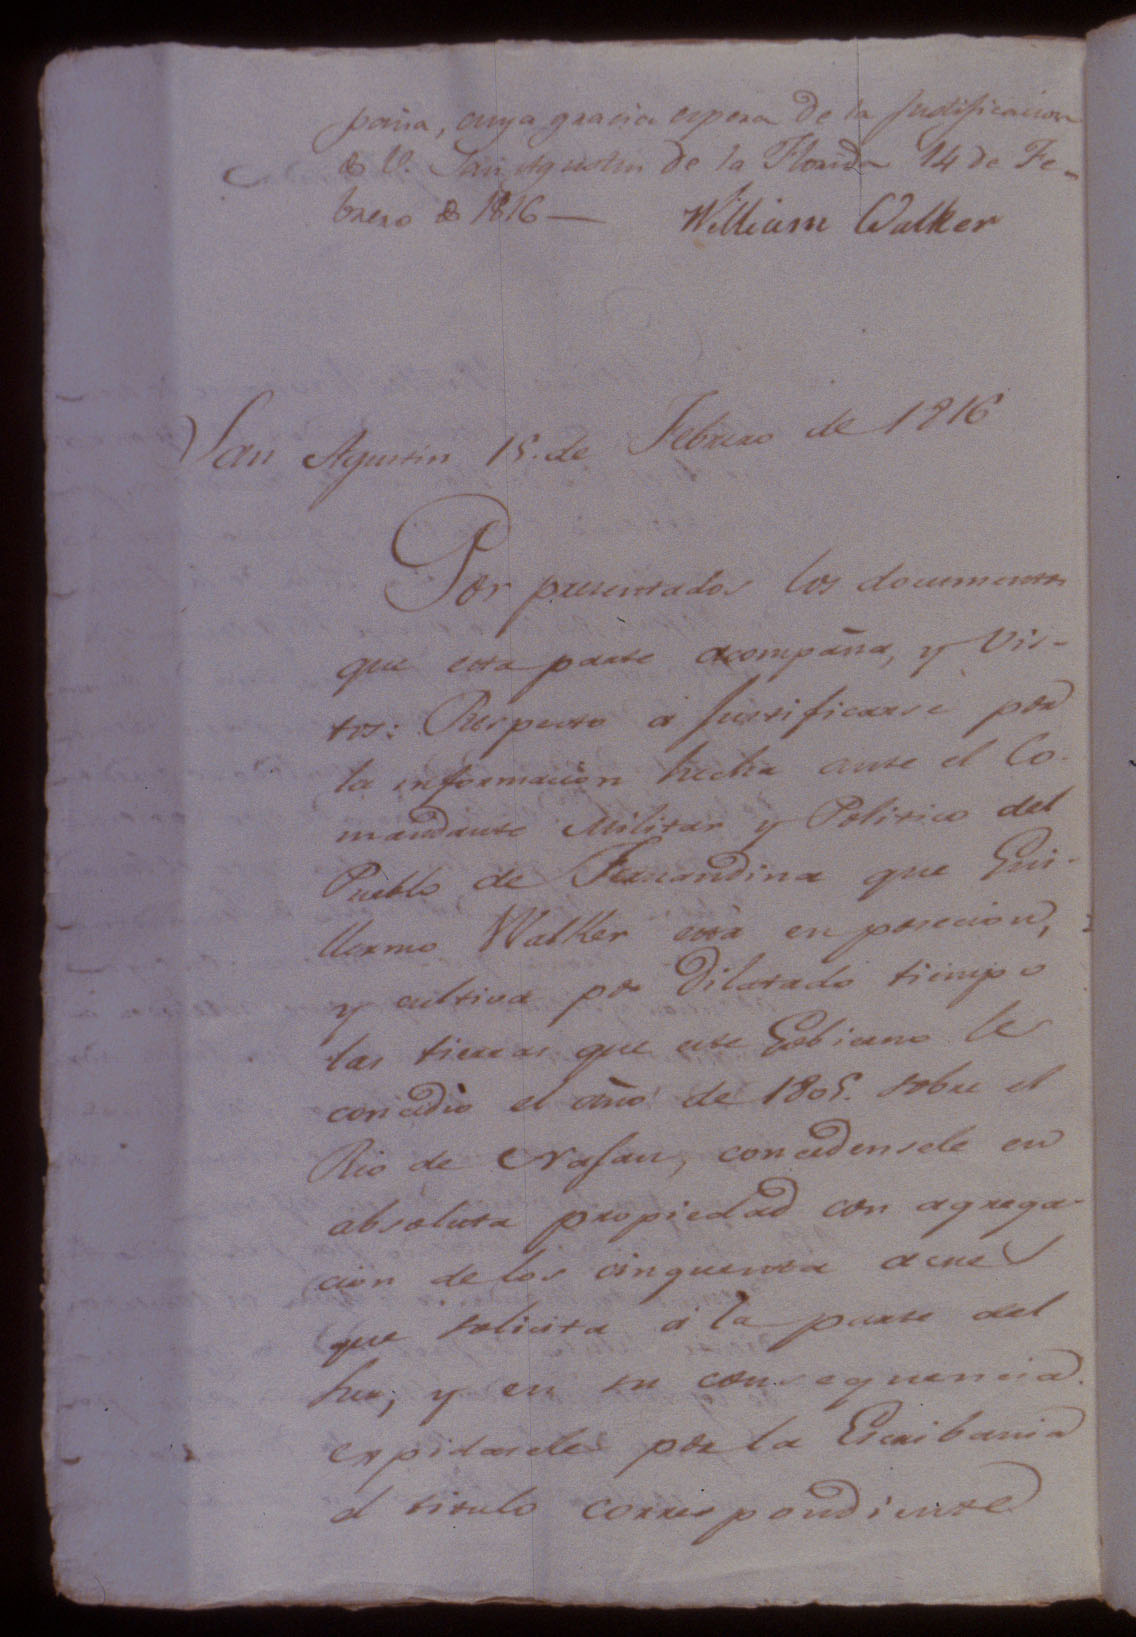 paña, cuya gracia espera de la Justificacion
de V. San Agustin de la Florida 14 de Fe-
brero de 1816—
William Walker
San Agustin 15. de Febrero de 1816
Por presentados los documentos
que esta parte acompaña, y Vis-
tos: Respecto a Justificarse por
la informacion hecha ante el Co-
mandante Militar y Politico del
Pueblo de Fernandina que Gui-
llermo Walker está en posecion,
y cultiva por dilatado tiempo
las tierras que este Gobierno le
concedió el año de 1805. sobre el
Rio de Nasau, concedensele en
absoluta propiedad con agrega-
cion de los cinquenta acres
que solicita á la parte del
Sur, y en su consequencia
expidasele por la Escribania
el titulo correspondiente